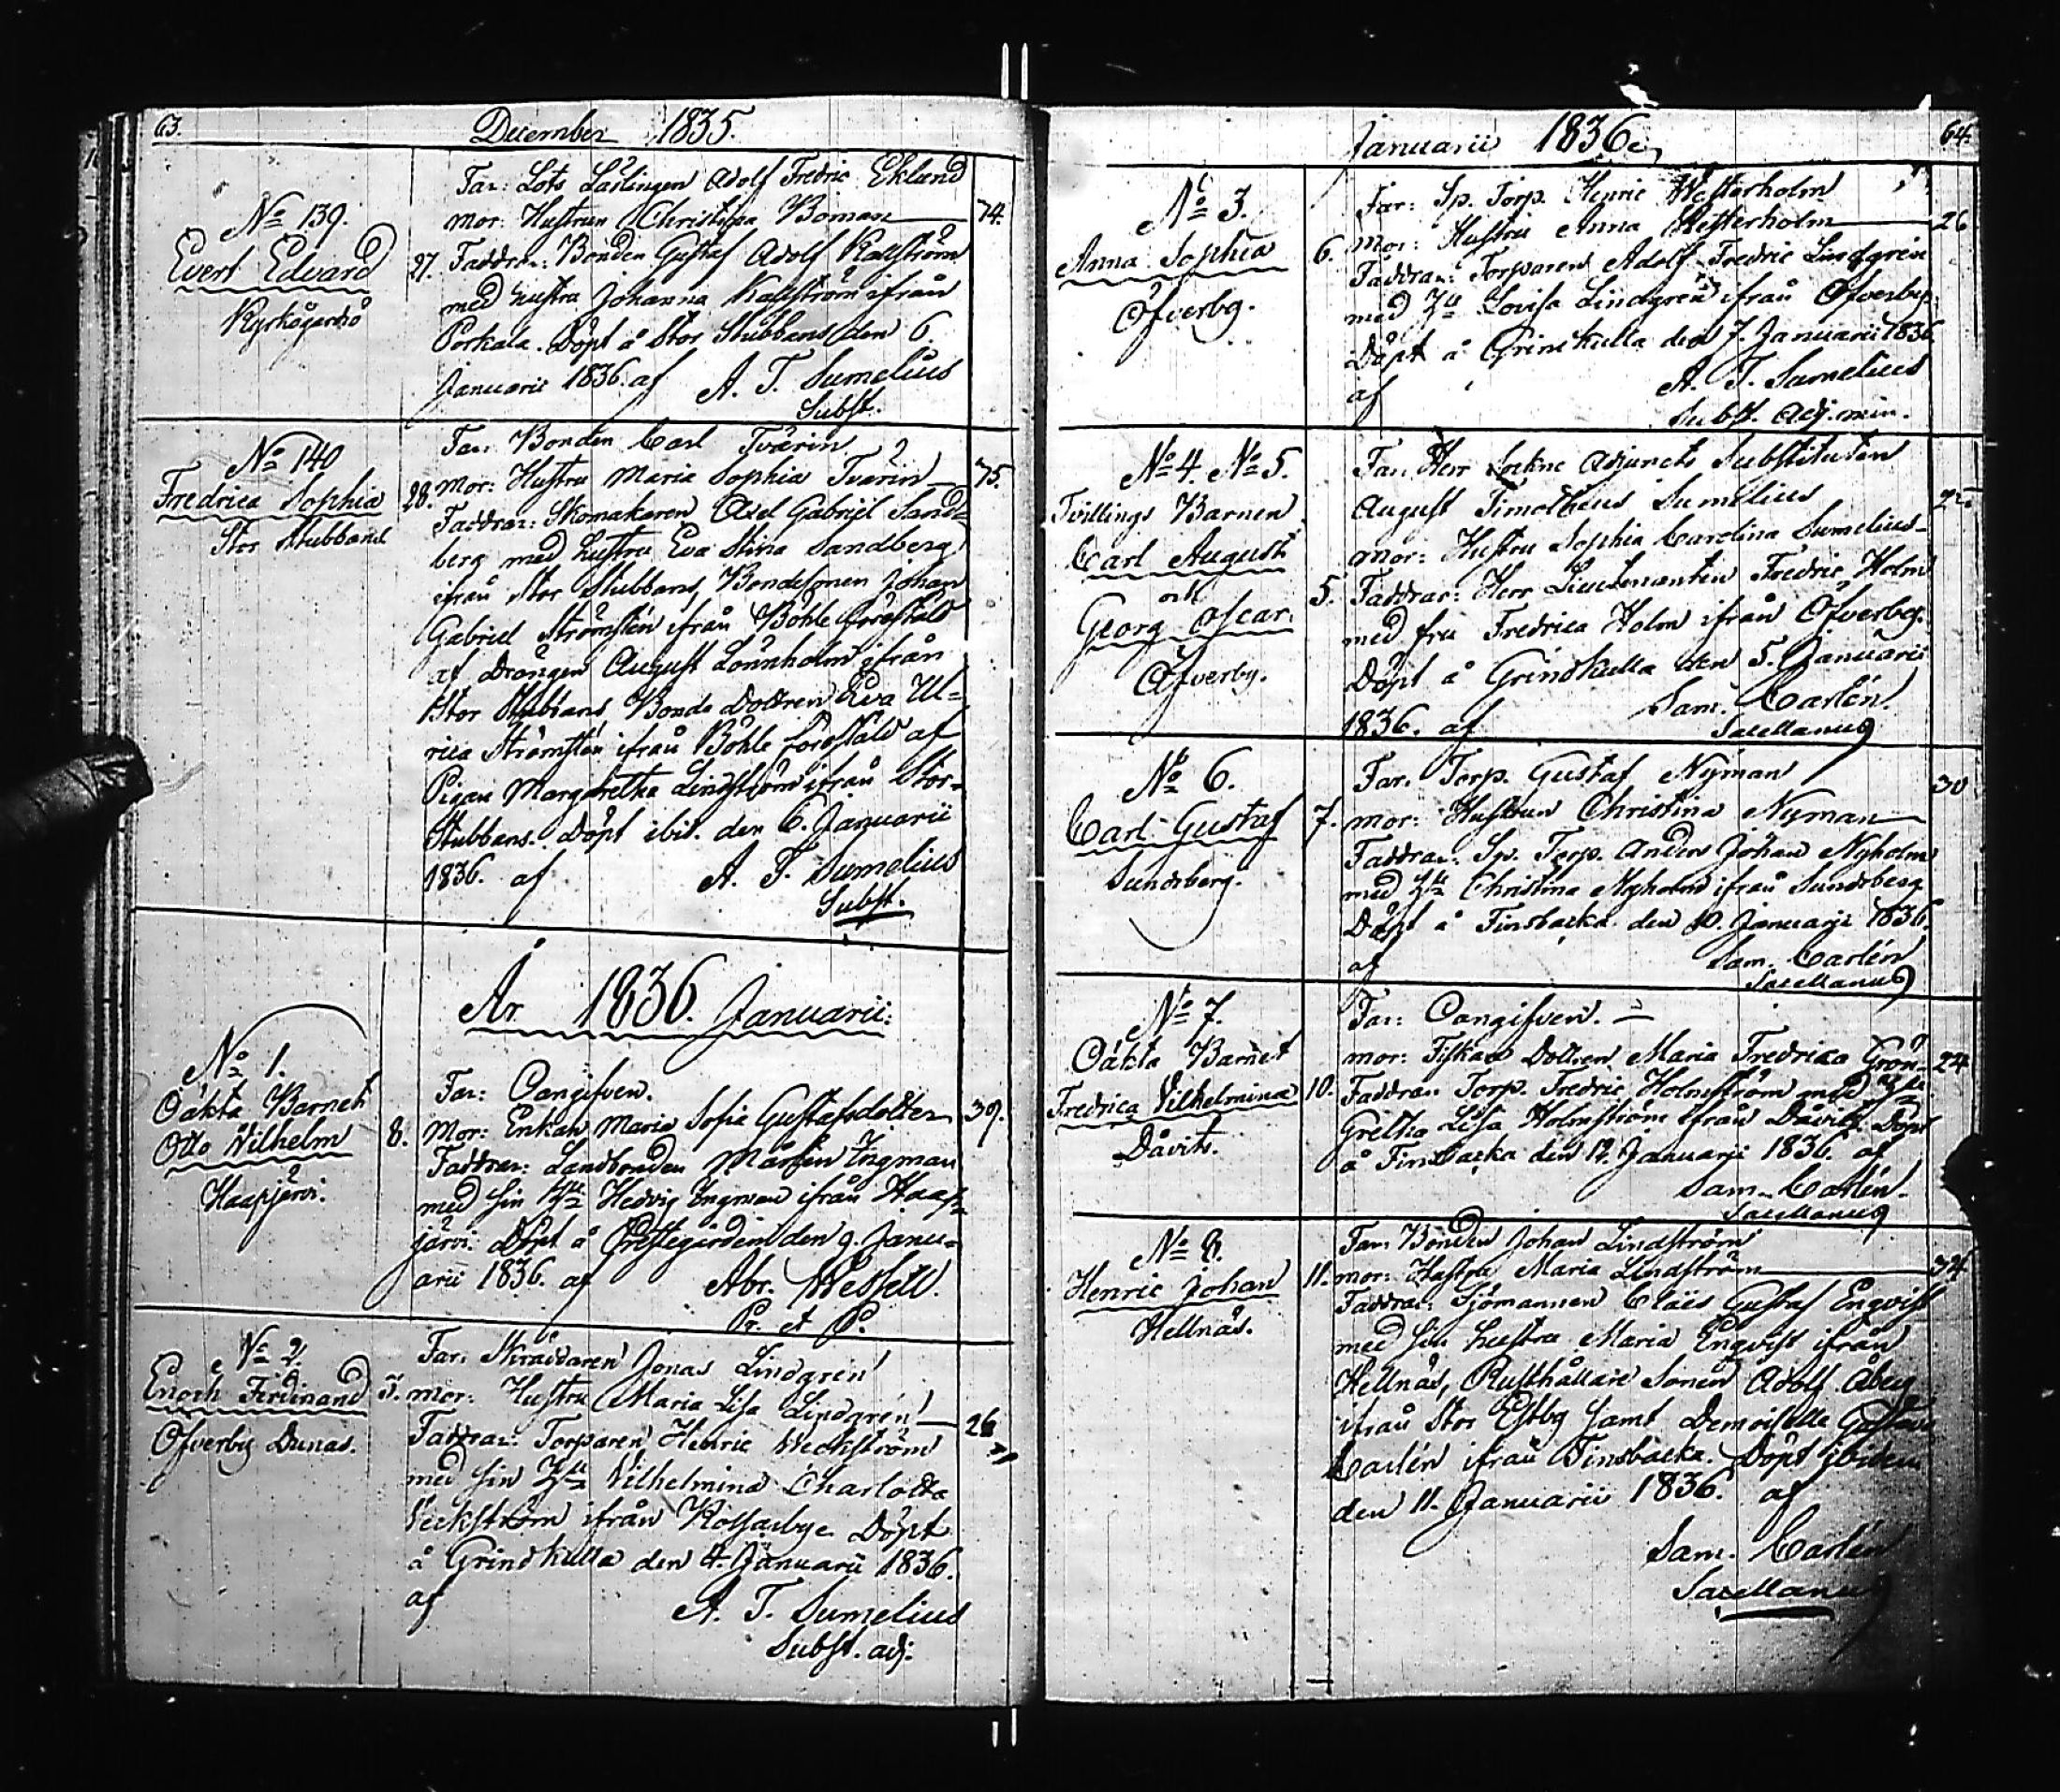 63.
December 1835.
No 139.
Evert Edvard
Kyrkogårdsö
27.
Far: Lots Lärlingen Adolf Fredric Eklund
mor: Hustrun Christina Boman
74.
Faddrar: Bonden Gustaf Adolf Kallström
med hustru Johanna Kallström ifrån
Porkala. Döpt å Stor Stubbans den 6.
Januarii 1836. af A. T. Sumelius
Subst.
No 140
Fredrica Sophia
Stor Stubbans
28.
Far: Bonden Carl Tvärin
mor: Hustru Maria Sophia Tvärin
75.
Faddrar: Skomakaren Axel Gabriel Sand=
berg med hustru Eva Stina Sandberg
ifrån Stor Stubbans, Bondesonen Johan
Gabriel Strömstén ifrån Böhle föreståld
af drängen August Lönnholm ifrån
Stor Stubbans Bonde Dottren Eva Ul=
rica Strömstén ifrån Böhle föreståld af
Pigan Margaretha Lindström ifrån Stor=
Stubbans. Döpt ibid. den 6. Januarii
1836. af A. T. Sumelius
Subst.
År 1836. Januarii:
No 1.
Oäkta Barnet
Otto Wilhelm
Haapjärvi.
8.
Far: Oangifven.
Mor: Enkan Maria Sofia Gustafsdotter
39.
Faddrar: Landbonden Mårten Ingman
med sin Hu Hedvig Ingman ifrån Haap=
järvi. Döpt å Prestegården den 9. Janu=
arii 1836. af Abr. Wessell.
Pr. et P.
No 2.
Enoch Ferdinand
Öfverby Dunas.
3.
Far: Skräddaren Jonas Lindgren
mor: Hustru Maria Lisa Lindgren
26
Faddrar: Torparen Henric Weckström
med sin Hu Vilhelmina Charlotta
Veckström ifrån Kolsarby. Döpt
å Grindkulla den 4. Januarii 1836.
af A. T. Sumelius
Subst. adj.
Januarii 1836.
64.
No 3.
Anna Sophia
Öfverby.
6.
Far: Sp. Torp. Henric Westerholm
Mor: Hustru Anna Westerholm
26
Faddrar: Torparen Adolf Fredric Lindgren
med Hu Lovisa Lindgren ifrån Öfverby.
Döpt å Grindkulla den 7. Januarii 1836
af A. T. Sumelius
Subst. Adj. min.
No 4. No 5.
Tvillings Barnen
Carl August
och
Georg Oscar.
Öfverby.
5.
Far: Herr Sockne Adjuncts Substituten
August Timotheus Sumelius
mor: Hustru Sophia Carolina Sumelius
Faddrar: Herr Lieutenanten Fredric Holm
med fru Fredrica Holm ifrån Öfverby.
Döpt å Grindkulla den 5. Januarii
1836. af Sam. Carlén
Sacellanus
No 6.
Carl Gustaf
Sundsberg.
7.
Far: Torp. Gustaf Nyman
30
mor: Hustrun Christina Nyman
Faddrar: Sp. Torp. Anders Johan Nyholm
med Hu Christina Nyholm ifrån Sundsberg
Döpt å Finsbacka den 10. Januarii 1836.
af Sam. Carlén
Sacellanus
No 7.
Oäkta Barnet
Fredrica Vilhelmina
Dåvits.
10.
Far: Oangifven.
mor: Fiskars Dottren Maria Fredrica Grön
24
Faddrar: Torp. Fredric Holmström med Hu
Gretha Lisa Holmström ifrån Dåvits. Döpt
å Finsbacka den 12. Januarii 1836. af
Sam. Carlén.
Sacellanus
No 8.
Henric Johan
Hellnäs.
11.
Far: Bonden Johan Lindström
mor: Hustru Maria Lindström
34
Faddrar: Sjömannen Claës Gustaf Engvist
med sin hustru Maria Engvist ifrån
Hellnäs, Rusthållare Sonen Adolf Åberg
ifrån Stor Estby samt Demoiselle Gustava
Carlén ifrån Finsbacka. Döpt ibidem
den 11. Januarii 1836. af
Sam. Carlén
Sacellanus